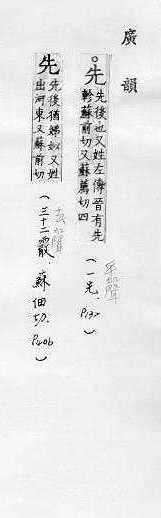 廣韻
。先 先後也又姓左傳晉有先
軫蘇前切又蘇薦切四
(一先、P132)
平聲
先 先後猶娣姒又姓
出河東又蘇前切
(三十二霰、蘇佃切、P406)
去聲